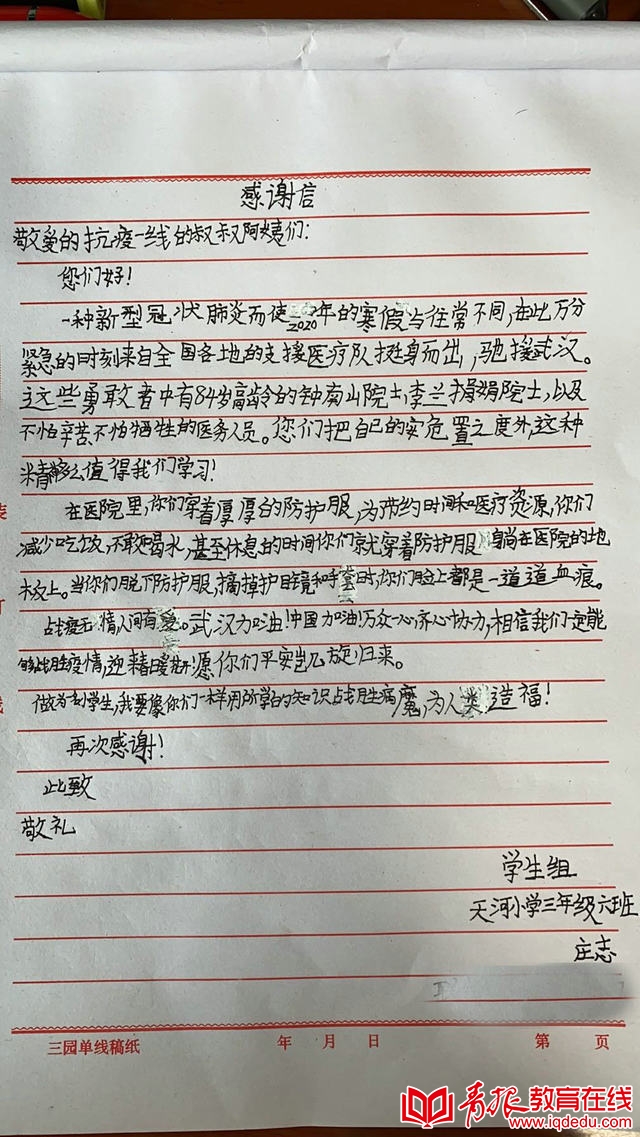 感谢信
敬爱的抗疫一线的叔叔阿姨们:
您们好!
一种新型冠状肺炎而使2020年的寒假与往常不同,在此万分
紧急的时刻来自全国各地的支援医疗队挺身而出,驰援武汉。
这些勇敢者中有84岁高龄的钟南山院士,李兰娟院士,以及
不怕辛苦、不怕牺牲的医务人员。您们把自己的安危置之度外,这种
精神多么值得我们学习!
在医院里,你们穿着厚厚的防护服,为节约时间和医疗资源,你们
减少吃饭,不敢喝水,甚至休息的时间你们就穿着防护服躺在医院的地
板上。当你们脱下防护服,摘掉护目镜和手套时,你们脸上都是一道道血痕。
战疫无情人间有爱。武汉加油!中国加油!万众一心,齐心协力,相信我们定能
够战胜疫情,迎来春暖花开!愿你们平安凯旋归来。
做为一名学生,我要像你们一样用所学的知识战胜病魔,为人类造福!
再次感谢!
此致
敬礼
学生组
天河小学三年级六班
庄志
三园单线稿纸 年 月 日 第 页
青报教育在线
www.iqdedu.com